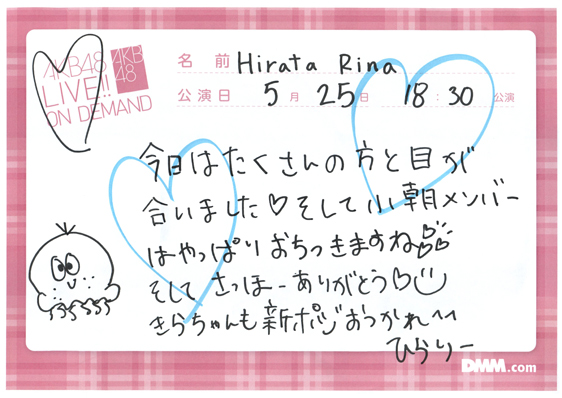 AKB48
LIVE!!
ON DEMAND
AKB
48
名前 Hirata Rina
公演日 5月 25日 18:30 公演
今日はたくさんの方と目が
合いました♡そして小朝メンバー
はやっぱりおちつきますね♡♡♡
そして さっほーありがとう♡
きらちゃんも新ポジおつかれ^^
ひらりー
DMM.com